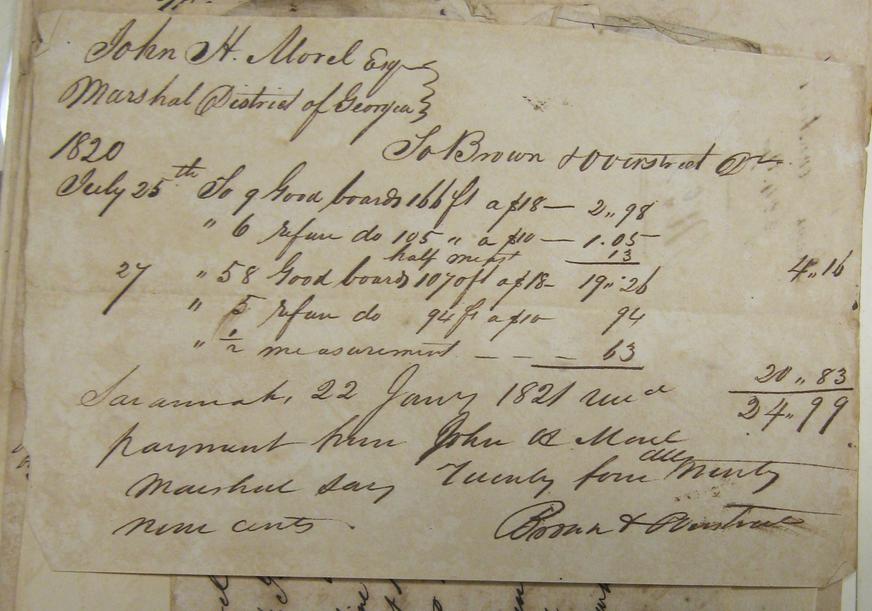 John H. Morel Esqr
Marshal District of Georgia
1820 To Brown & Overstreet Dr
July 25th To 9 Good boards 166 ft a $18 — 2,,98
" 6 refuse do 105 " a $10 — 1.05
half meast 13 4,,16
27 " 58 Good boards 1070 ft a $18 - 19,,26
" 5 refuse do 94 ft a $10 94
" 1/2 measurement - - - 63
20,,83
Savannah, 22 Jany 1821 recd 24,,99
payment from John H Morel
Marshal say Twenty four dlls Ninty
nine cents Brown & Overstreet